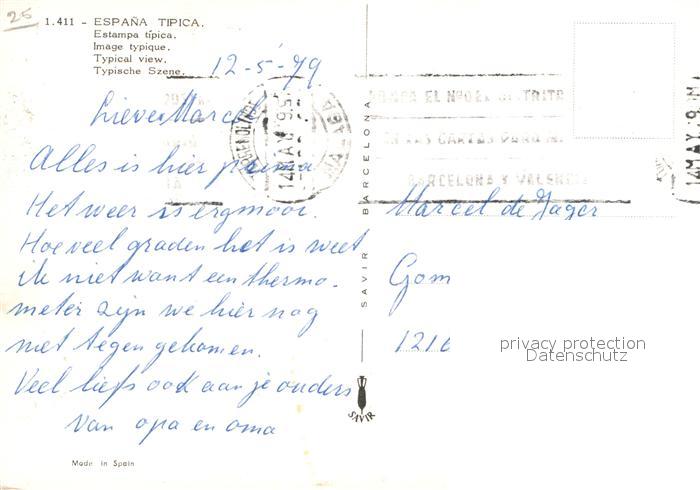 25
1.411 - ESPAÑA TIPICA.
Estampa típica.
Image typique.
Typical view.
Typische Szene.
12-5-79
Lieve Marcel
Alles is hier prima
Het weer is erg mooi.
Hoeveel graden het is weet
ik niet want een thermo-
meter zijn we hier nog
niet tegen gekomen.
Veel liefs ook aan je ouders
van opa en oma
Made in Spain
SAVIR BARCELONA
SAVIR
14 MAY 9
EL Nº DEL DISTRITO
CARTAS PARA
BARCELONA Y VALENCIA
14 MAY 9
Marcel de Jager
Gom
121
privacy protection
Datenschutz